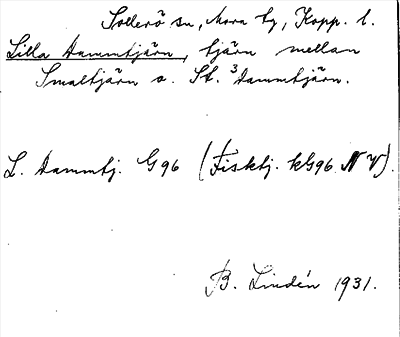 Sollerö sn, Mora tg, Kopp. l.
Lilla Dammtjärn, tjärn mellan
Smaltjärn o. St. Dammtjärn.
L. Dammtj. G96 (Fisktj. kG96 NV).
B. Lindén 1931.